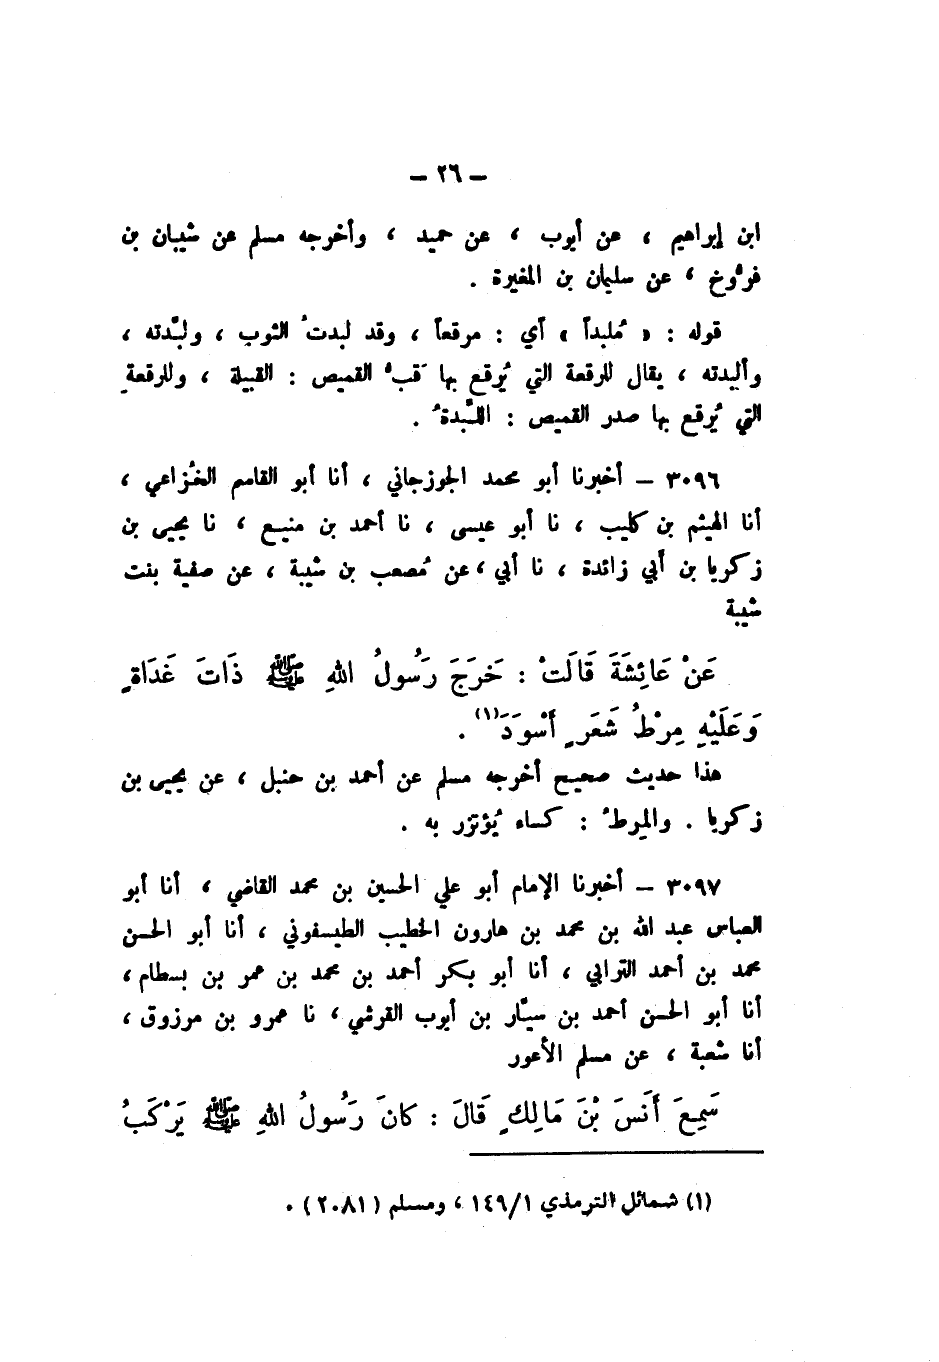 – ٢٦ –
ابن إبراهيم ، عن أيوب ، عن حميد ، وأخرجه مسلم عن شيبان بن
فرُّوخ ، عن سليمان بن المغيرة .
قوله : « مُلبداً » أي : مرقعاً ، وقد لبدتُ الثوب ، ولبَّدته ،
وألبدته ، يقال للرقعة التي يُرقع بها قَبُّ القميص : القبيلة ، وللرقعةِ
التي يُرقع بها صدر القميص : اللبَّدةُ .
٣٠٩٦ – أخبرنا أبو محمد الجوزجاني ، أنا أبو القاسم الخُزاعي ،
أنا الهيثم بن كليب ، نا أبو عيسى ، نا أحمد بن منيع ، نا يحيى بن
زكريا بن أبي زائدة ، نا أبي ، عن مُصعب بن شيبة ، عن صفية بنت
شيبة
عَنْ عَائِشَةَ قَالَتْ : خَرَجَ رَسُولُ اللهِ ﷺ ذَاتَ غَدَاةٍ
وَعَلَيْهِ مِرْطُ شَعَرٍ أَسْوَدَ(١) .
هذا حديث صحيح أخرجه مسلم عن أحمد بن حنبل ، عن يحيى بن
زكريا . والمِرطُ : كساء يُؤتزر به .
٣٠٩٧ – أخبرنا الإمام أبو علي الحسين بن محمد القاضي ، أنا أبو
العباس عبد الله بن محمد بن هارون الخطيب الطيسفوني ، أنا أبو الحسن
محمد بن أحمد الترابي ، أنا أبو بكر أحمد بن محمد بن عمر بن بسطام ،
أنا أبو الحسن أحمد بن سيَّار بن أيوب القرشي ، نا عمرو بن مرزوق ،
أنا شعبة ، عن مسلم الأعور
سَمِعَ أَنَسَ بْنَ مَالِكٍ قَالَ : كانَ رَسُولُ اللهِ ﷺ يَرْكَبُ
(١) شمائل الترمذي ١٤٩/١ ، ومسلم (٢٠٨١) .